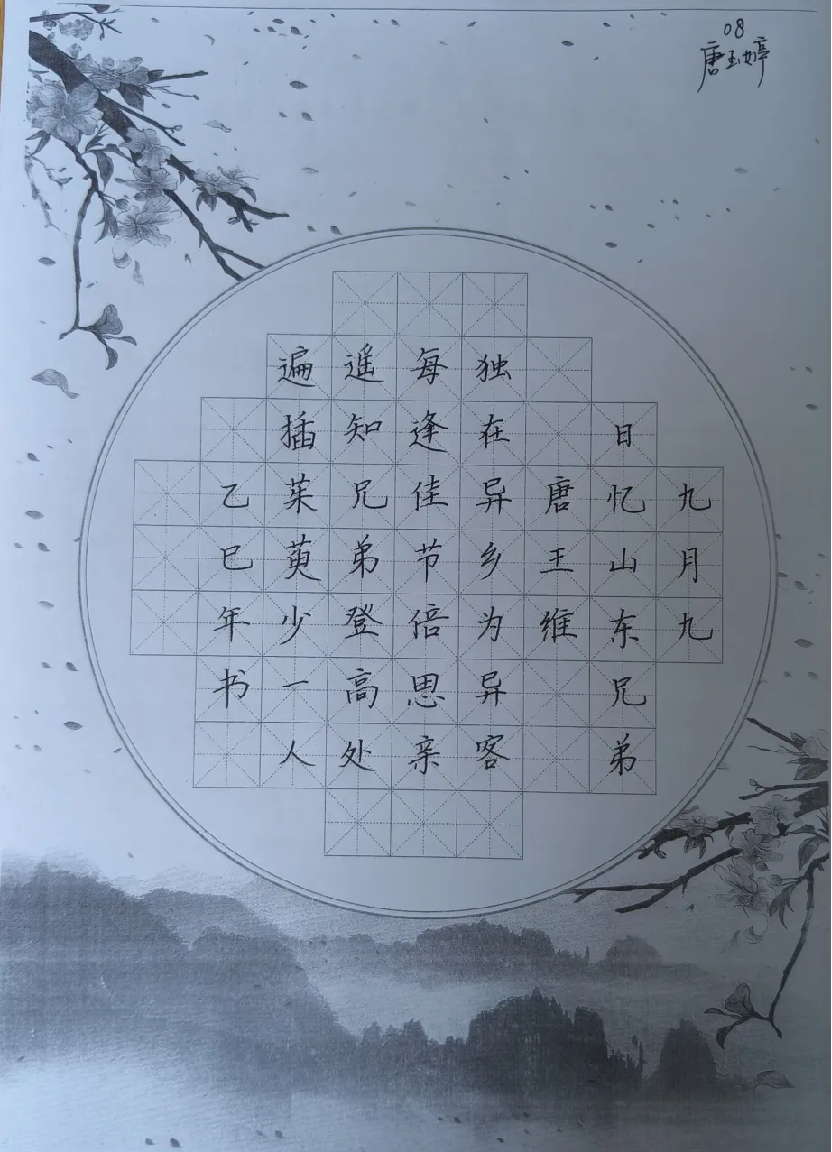 08
唐玉婷
九月九
日忆山东兄弟
唐王维
独在异乡为异客
每逢佳节倍思亲
遥知兄弟登高处
遍插茱萸少一人
乙巳年书